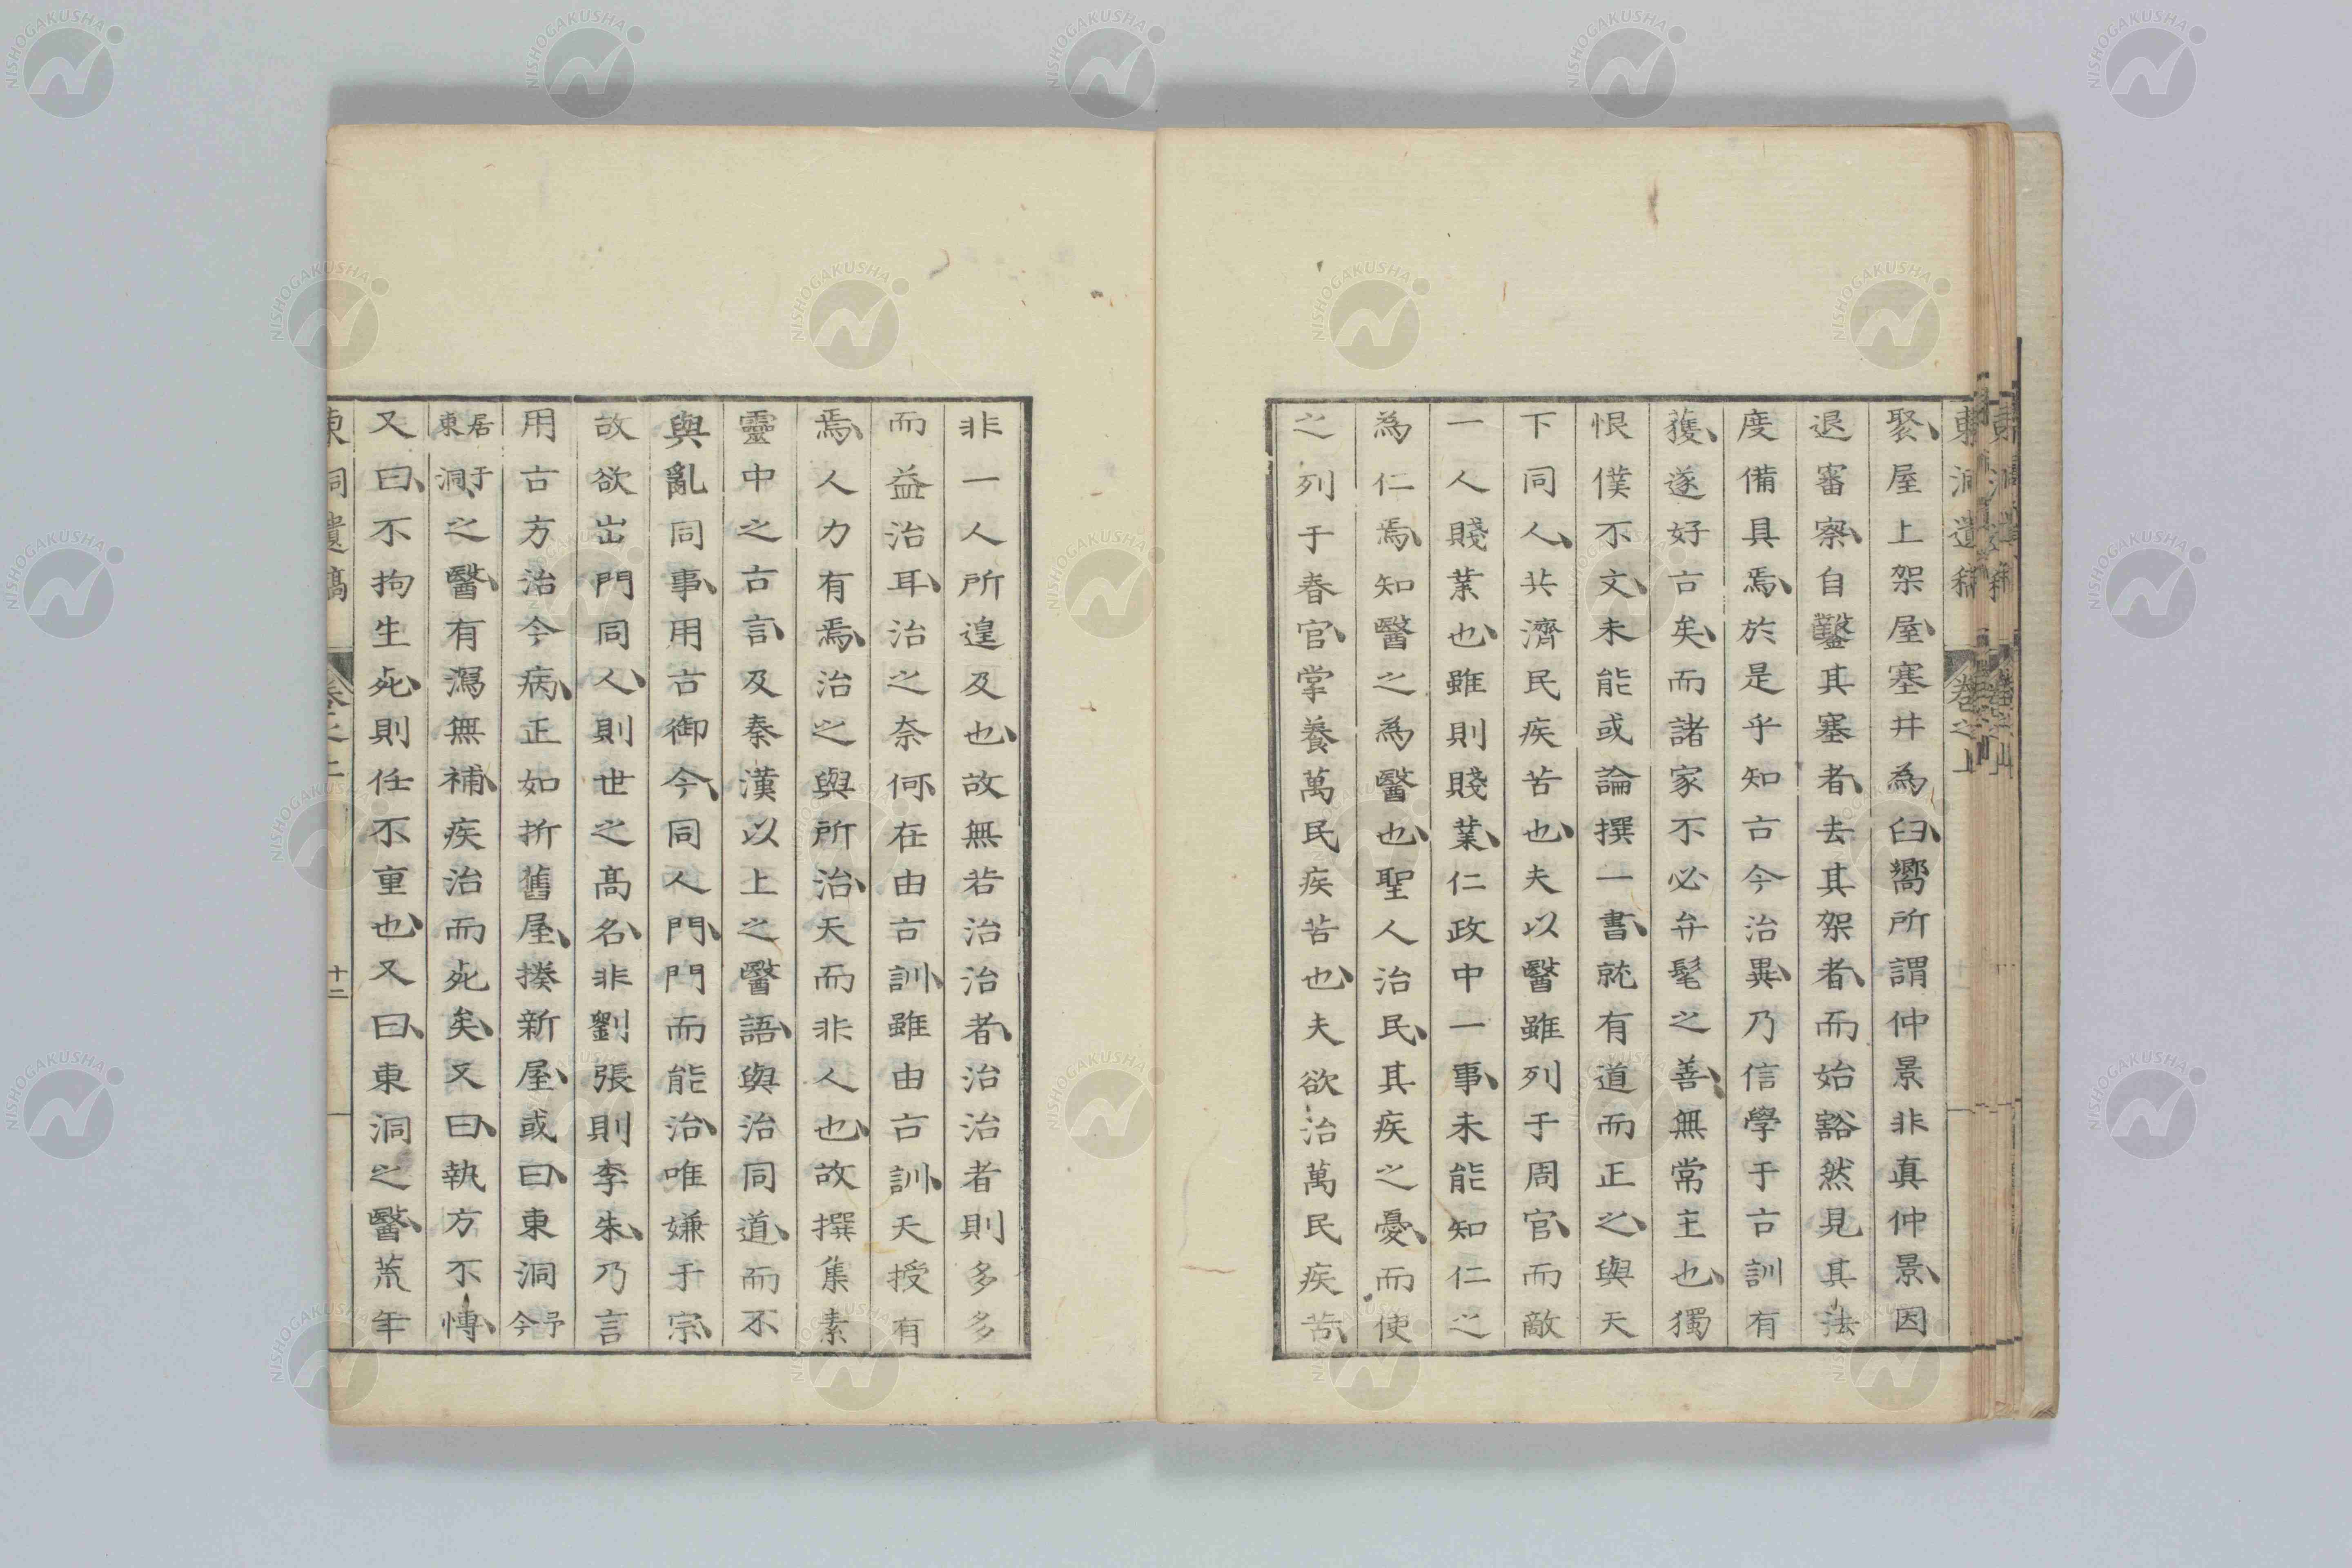 褧、屋上架屋、塞井為臼、嚮所謂仲景非真仲景、因
退審察、自鑿其塞者、去其架者、而始豁然見其法
度備具焉、於是乎知古今治異、乃信學于古訓有
獲、遂好古矣、而諸家不必弁髦之善、無常主也、獨
恨僕不文、未能或論撰一書、就有道而正之、與天
下同人、共濟民疾苦也、夫以醫雖列于周官、而敵
一人賤業也、雖則賤業、仁政中一事、未能知仁之
為仁焉、知醫之為醫也、聖人治民、其疾之憂、而使
之列于春官、掌養萬民疾苦也、夫欲治萬民疾苦、
非一人所遑及也、故無若治治者、治治者則多多
而益治耳、治之奈何、在由古訓、雖由古訓、天授有
焉、人力有焉、治之與所治、天而非人也、故撰集素
靈中之古言、及秦漢以上之醫語、與治同道、而不
與亂同事、用古御今、同人門、門而能治、唯嫌于宗、
故欲出門同人、則世之高名、非劉張則李朱、乃言
用古方治今病、正如折舊屋、揍新屋、或曰、東洞予今
居于東洞、之醫、有瀉無補、疾治而死矣、又曰、執方不慱、
又曰、不拘生死、則任不重也、又曰、東洞之醫、荒年
東洞遺稿 卷之上 十二
東洞遺稿 卷之上